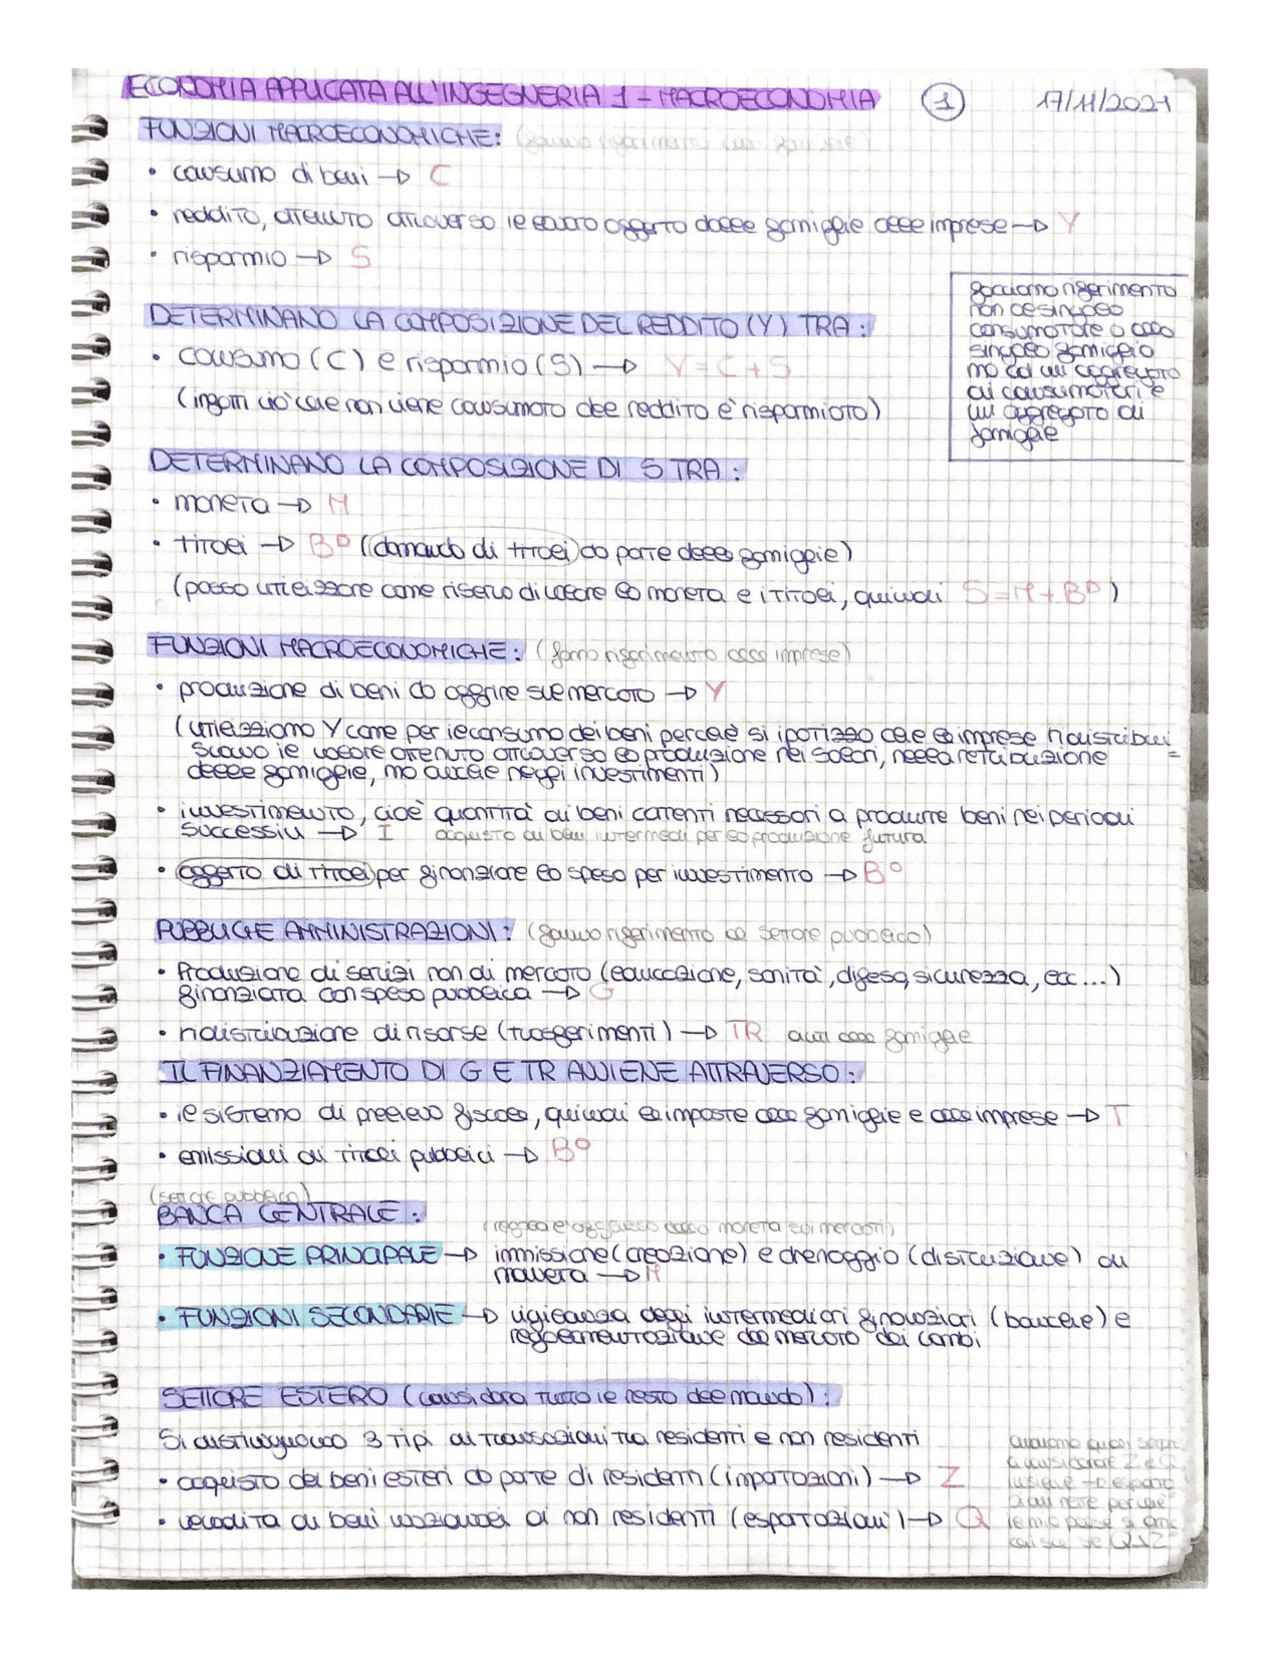 ECONOMIA APPLICATA ALL'INGEGNERIA 1 - MACROECONOMIA
1
17/11/2021
FUNZIONI MACROECONOMICHE: (fanno riferimento
• consumo di beni → C
• reddito, ottenuto attraverso il lavoro offerto dalle famiglie alle imprese → Y
• risparmio → S
facciamo riferimento
non al singolo
consumatore o alla
singola famiglia
ma ad un aggregato
di consumatori e
un aggregato di
famiglie
DETERMINANO LA COMPOSIZIONE DEL REDDITO (Y) TRA:
• consumo (C) e risparmio (S) → Y = C + S
(infatti ciò che non viene consumato del reddito è risparmiato)
DETERMINANO LA COMPOSIZIONE DI S TRA:
• moneta → M
• titoli → Bᴰ (domanda di titoli da parte delle famiglie)
(posso utilizzare come riserva di valore la moneta e i titoli, quindi S = M + Bᴰ)
FUNZIONI MACROECONOMICHE: (fanno riferimento alle imprese)
• produzione di beni da offrire sul mercato → Y
(utilizziamo Y come per il consumo dei beni perché si ipotizza che le imprese ridistribui=
scano il valore ottenuto attraverso la produzione nei salari, nella retribuzione
delle famiglie, ma anche negli investimenti)
• investimento, cioè quantità di beni correnti necessari a produrre beni nei periodi
successivi → I acquisto di beni intermedi per la produzione futura
• offerta di titoli per finanziare la spesa per investimento → B⁰
PUBBLICHE AMMINISTRAZIONI: (fanno riferimento al settore pubblico)
• Produzione di servizi non di mercato (educazione, sanità, difesa, sicurezza, ecc...)
finanziata con spesa pubblica → G
• ridistribuzione di risorse (trasferimenti) → TR aiuti alle famiglie
IL FINANZIAMENTO DI G E TR AVVIENE ATTRAVERSO:
• il sistema di prelievo fiscale, quindi le imposte alle famiglie e alle imprese → T
• emissioni di titoli pubblici → B⁰
(settore pubblico)
BANCA CENTRALE:
(regola l'afflusso della moneta sui mercati)
• FUNZIONE PRINCIPALE → immissione (creazione) e drenaggio (distruzione) di
moneta → M
• FUNZIONI SECONDARIE → vigilanza degli intermediari finanziari (banche) e
regolamentazione del mercato dei cambi
SETTORE ESTERO (considera tutto il resto del mondo):
Si distinguono 3 tipi di transazioni tra residenti e non residenti
• acquisto dei beni esteri da parte di residenti (importazioni) → Z
• vendita di beni nazionali ai non residenti (esportazioni) → Q
a considerare Z e Q
insieme → esporta
perché
il mio paese si
se Q>Z